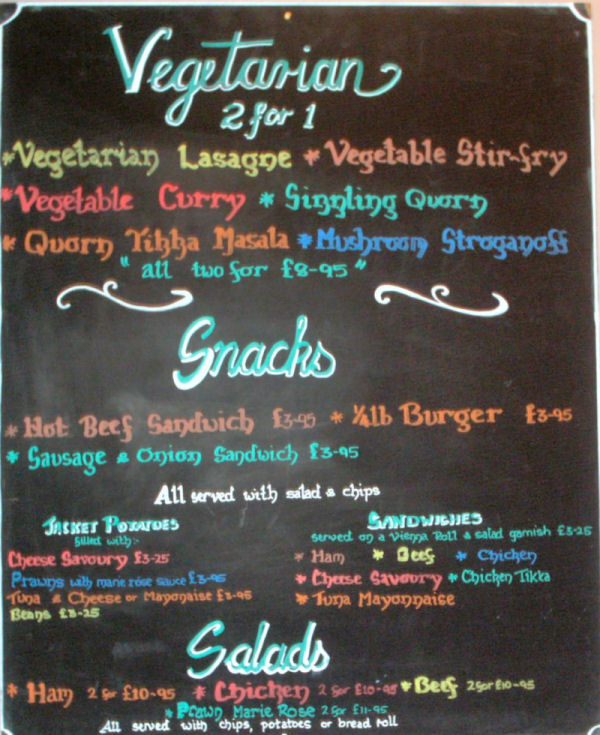 Vegetarian
2 for 1
*Vegetarian Lasagne *Vegetable Stir-fry
*Vegetable Curry *Sizzling Quorn
*Quorn Tikka Masala *Mushroom Stroganoff
"all two for £8-95"
Snacks
*Hot Beef Sandwich £3-95 *¼lb Burger £3-95
*Sausage & Onion Sandwich £3-95
All served with salad & chips
Jacket Potatoes
filled with:-
Cheese Savoury £3-25
Prawns with marie rose sauce £3-95
Tuna & Cheese or Mayonaise £3-95
Beans £3-25
Sandwiches
served on a Vienna Roll & salad garnish £3-25
*Ham *Beef *Chicken
*Cheese Savoury *Chicken Tikka
*Tuna Mayonnaise
Salads
*Ham 2 for £10-95 *Chicken 2 for £10-95 *Beef 2 for £10-95
*Prawn Marie Rose 2 for £11-95
All served with chips, potatoes or bread roll